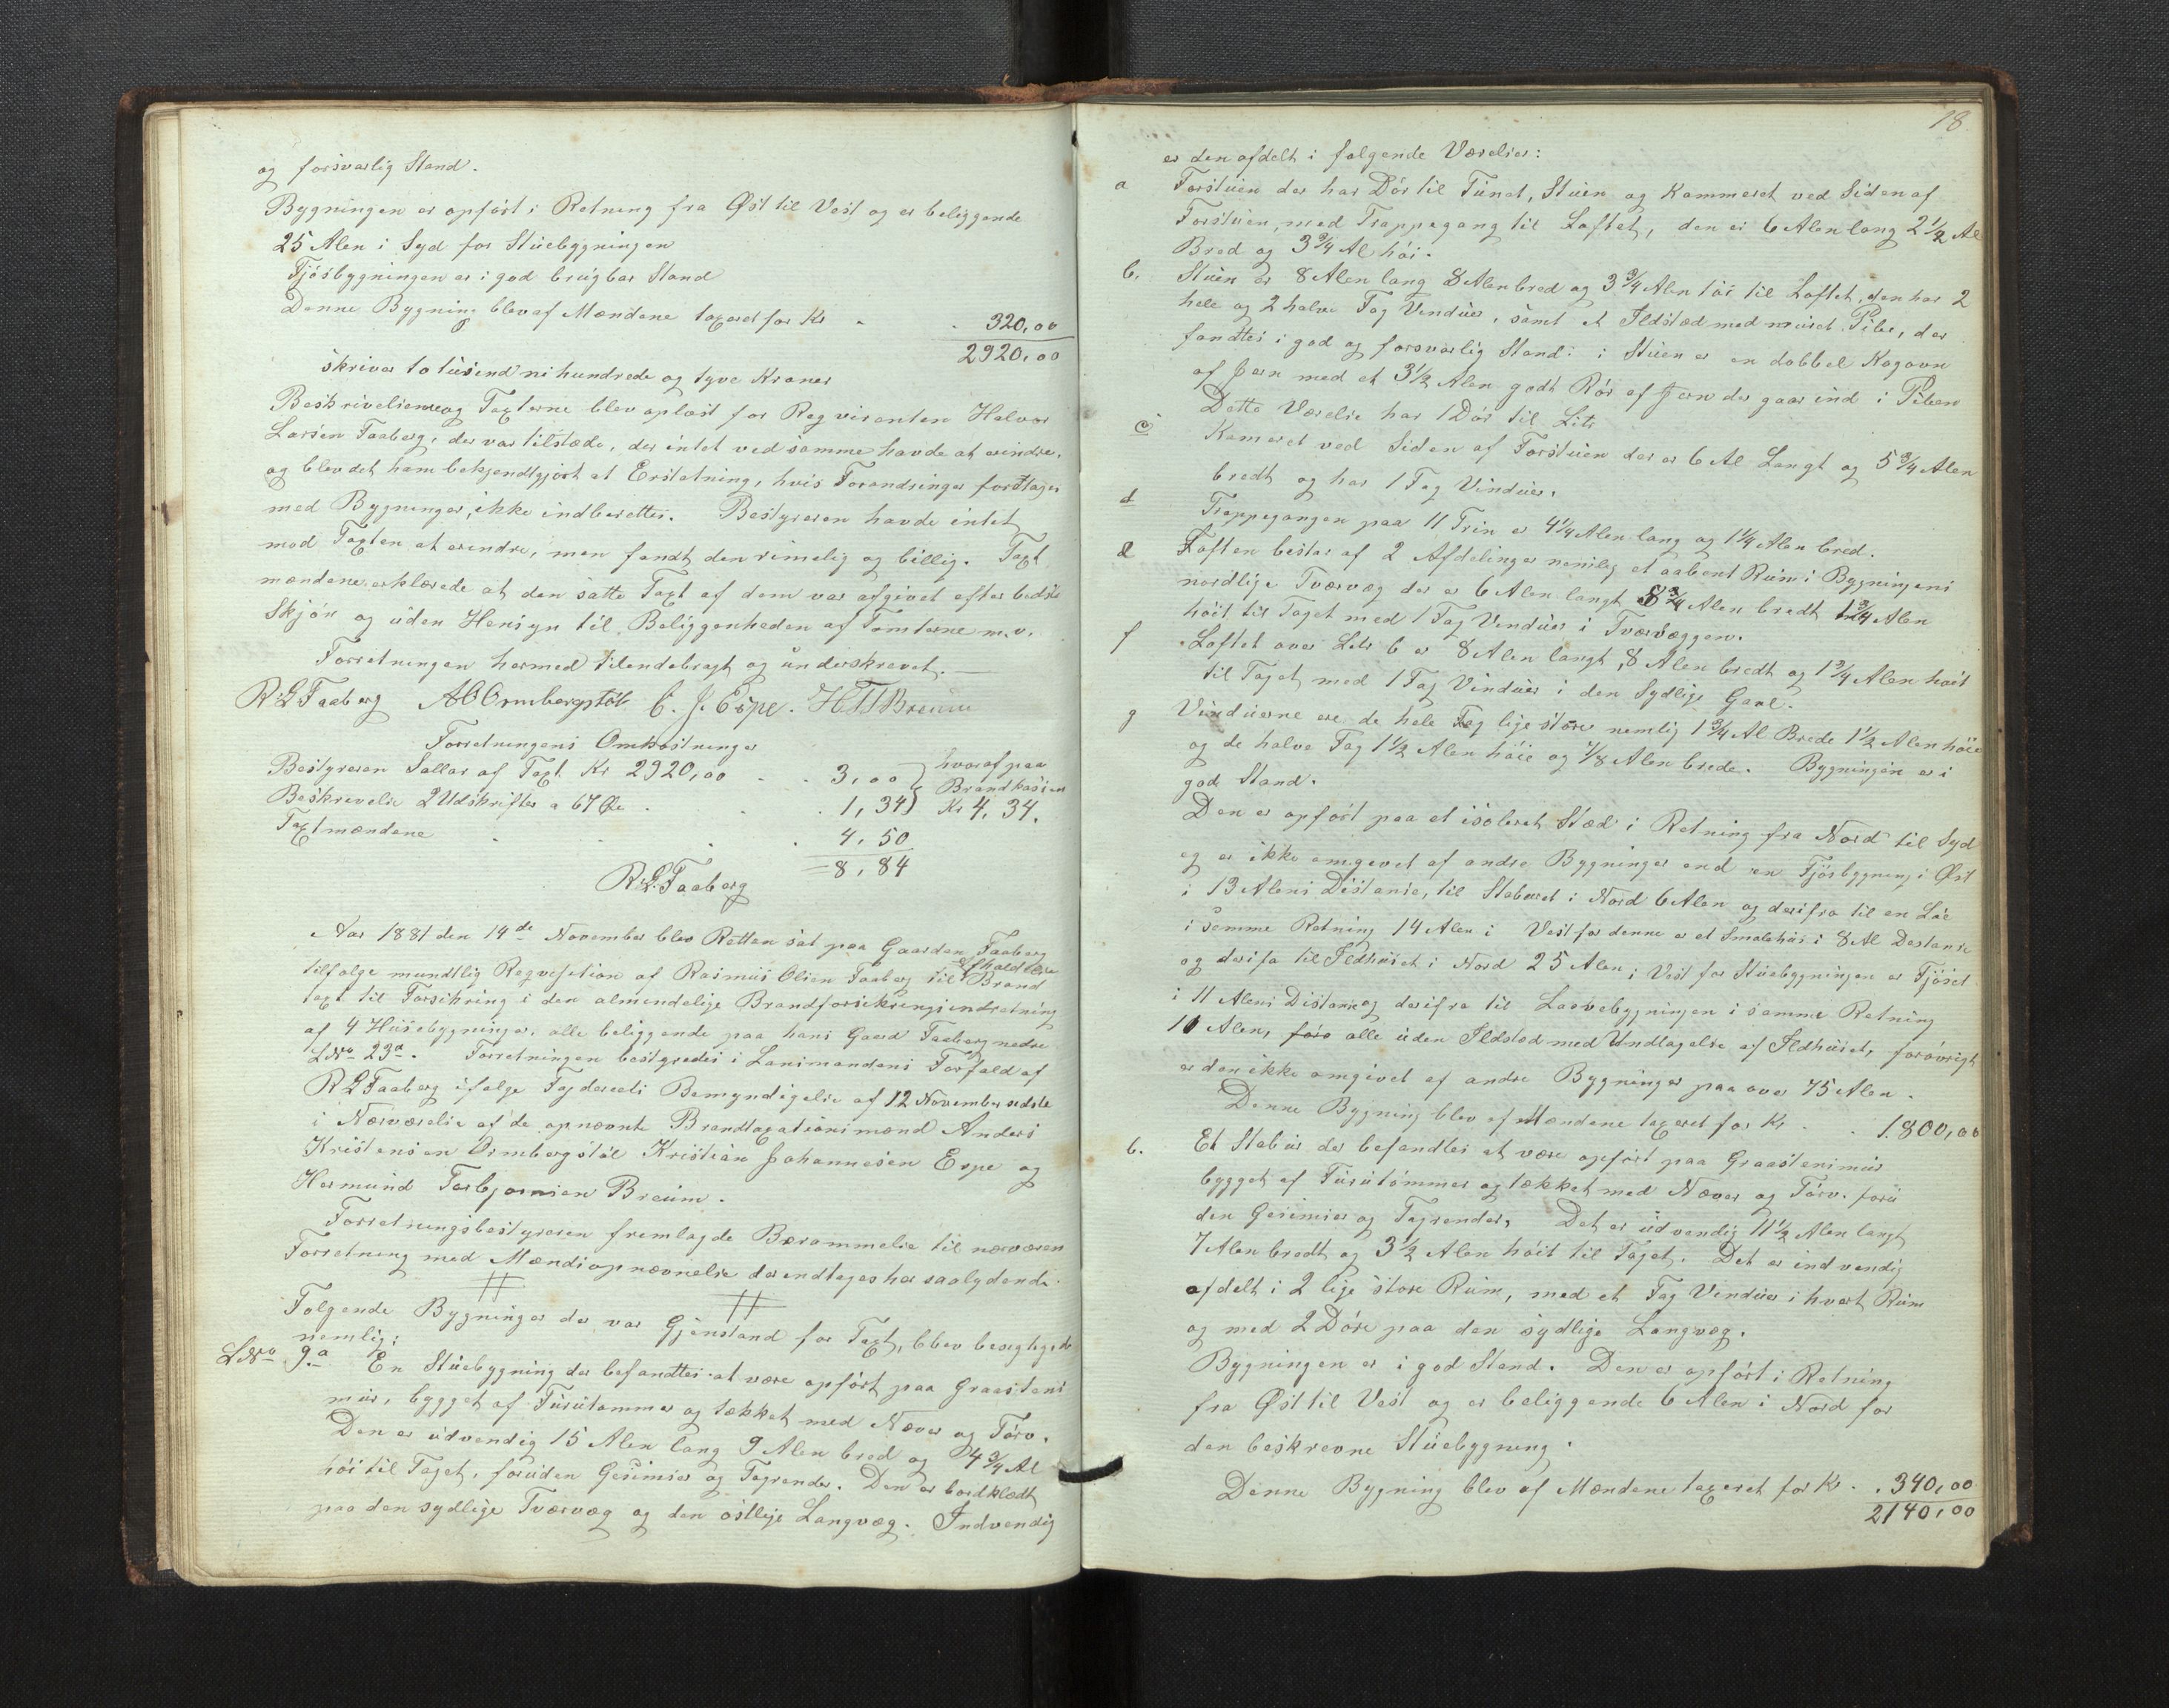 og forsvarlig Stand.
Bygningen er opført i Retning fra Øst til Vest og er beliggende
25 Alen i Syd for Stuebygningen
Fjøsbygningen er i god brugbar Stand
Denne Bygning blev af Mændene taxeret for Kr - - 320,00
2920,00
skriver to tusend ni hundrede og tyve Kroner
Beskrivelserne og Taxterne blev oplæst for Reqvirenten Halvor
Larsen Faaberg, der var tilstæde, der intet ved samme havde at erindre,
og blev det ham bekjendtgjort at Erstatning, hvis Forandringer foretages
med Bygninger, ikke indberettes. Bestyreren havde intet
mod Taxten at erindre, men fandt den rimelig og billig. Taxt
mændene erklærede at den satte Taxt af dem var afgivet efter bedste
Skjøn og uden Hensyn til Beliggenheden af Tomterne m.v.
Forretningen hermed tilendebragt og underskrevet. —
R L Faaberg A O Ormbergstøl C. J. Espe. H T Breum
Forretningens Omkostninger
Bestyreren Sallar af Taxt Kr 2920,00 - - 3,00 } hvoraf paa
Beskrivelse 2 Udskrifter a 67 Øre . . . 1,34 } Brandkassen Kr 4,34.
Taxtmændene . . . 4,50
= 8,84
R L Faaberg
Aar 1881 den 14de November blev Retten sat paa Gaarden Faaberg
tilfølge mundtlig Reqvisition af Rasmus Olsen Faaberg til Afholdelse Brand
taxt til Forsikring i den almindelige Brandforsikringsindretning
af 4 Husebygninger, alle beliggende paa hans Gaard Faaberg nedre
L No 23a. Forretningen bestyredes i Lensmandens Forfald af
R L Faaberg ifølge Fogderiets Bemyndigelse af 12 November sidste
i Nærværelse af de opnævnte Brandtaxationsmænd Anders
Kristensen Ormbergstøl Kristian Johannesen Espe og
Hermund Torbjørnsen Breum.
Forretningsbestyreren fremlagde Berammelse til nærværen
Forretning med Mændsopnævnelse der indtages her saalydende.
# #
Følgende Bygninger der var Gjenstand for Taxt, blev besigtigede
nemlig:
L No 9. a En Stuebygning der befandtes at være opført paa Graastens
mur, bygget af Furutømmer og tækket med Næver og Tørv.
Den er udvendig 15 Alen lang 9 Alen bred og 4 3/4 Al
høi til Taget, foruden Gesimser og Tagrender. Den er bordklædt
paa den sydlige Tværvæg og den østlige Langvæg. Indvendig
18
er den afdelt i følgende Værelser:
a Forstuen der har Dør til Tunet, Stuen og Kammeret ved Siden af
Forstuen, med Trappegang til Loftet, den er 6 Alen lang 2 1/2 Al
Bred og 3 3/4 Al høi.
b. Stuen er 8 Alen lang 8 Alen bred og 3 3/4 Alen høi til Loftet, den har 2
hele og 2 halve Fag Vinduer, samt et Ildsted med muret Pibe, der
fandtes i god og forsvarlig Stand: i Stuen er en dobbel Kogovn
af Jern med et 3 1/2 Alen godt Rør af Jern der gaar ind i Piben
Dette Værelse har 1 Dør til Litr
c Kammeret ved Siden af Forstuen der er 6 Al Langt og 5 3/4 Alen
bredt og har 1 Fag Vinduer.
d Trappegangen paa 11 Trin er 4 1/4 Alen lang og 1 1/4 Alen bred.
e Loften bestaar af 2 Afdelinger nemlig et aabent Rum i Bygningens
nordlige Tværvæg der er 6 Alen langt 8 3/4 Alen bredt 1 3/4 Alen
høit til Taget med 1 Fag Vinduer i Tværvæggen.
f Loftet over Litr b er 8 Alen langt, 8 Alen bredt og 1 3/4 Alen høit
til Taget med 1 Fag Vinduer i den Sydlige Gavl.
g Vinduerne ere de hele Fag lige store nemlig 1 3/4 Al Brede 1 1/2 Alen høie
og de halve Fag 1 1/2 Alen høie og 7/8 Alen brede. Bygningen er i
god Stand.
Den er opført paa et isoleret Stæd i Retning fra Nord til Syd
og er ikke omgivet af andre Bygninger end en Fjøsbygning i Øst
i 13 Alens Distanse, til Staburet i Nord 6 Alen og derifra til en Løe
i samme Retning 14 Alen i Vest for denne er et Smalehus i 8 Al Destanse
og derifra til Ildhuset i Nord 25 Alen, i Vest for Stuebygningen er Fjøset
i 11 Alens Distanse og derifra til Laavebygningen i samme Retning
10 Alen, alle uden Ildsted med Undtagelse af Ildhuset, forøvrigt
er den ikke omgivet af andre Bygninger paa over 75 Alen.
Denne Bygning blev af Mændene taxeret for Kr - - 1.800,00
b. Et Stabur der befandtes at være opført paa Graastensmur
bygget af Furutømmer og tækket med Næver og Tørv. foru
den Gesimser og Tagrender. Det er udvendig 11 1/2 Alen langt
7 Alen bredt og 3 1/2 Alen høit til Taget. Det er indvendig
afdelt i 2 lige store Rum, med et Fag Vinduer i hvert Rum
og med 2 Døre paa den sydlige Langvæg.
Bygningen er i god Stand. Den er opført i Retning
fra Øst til Vest og er beliggende 6 Alen i Nord for
den beskrevne Stuebygning.
Denne Bygning blev af Mændene taxeret for Kr . . 340,00
2140,00